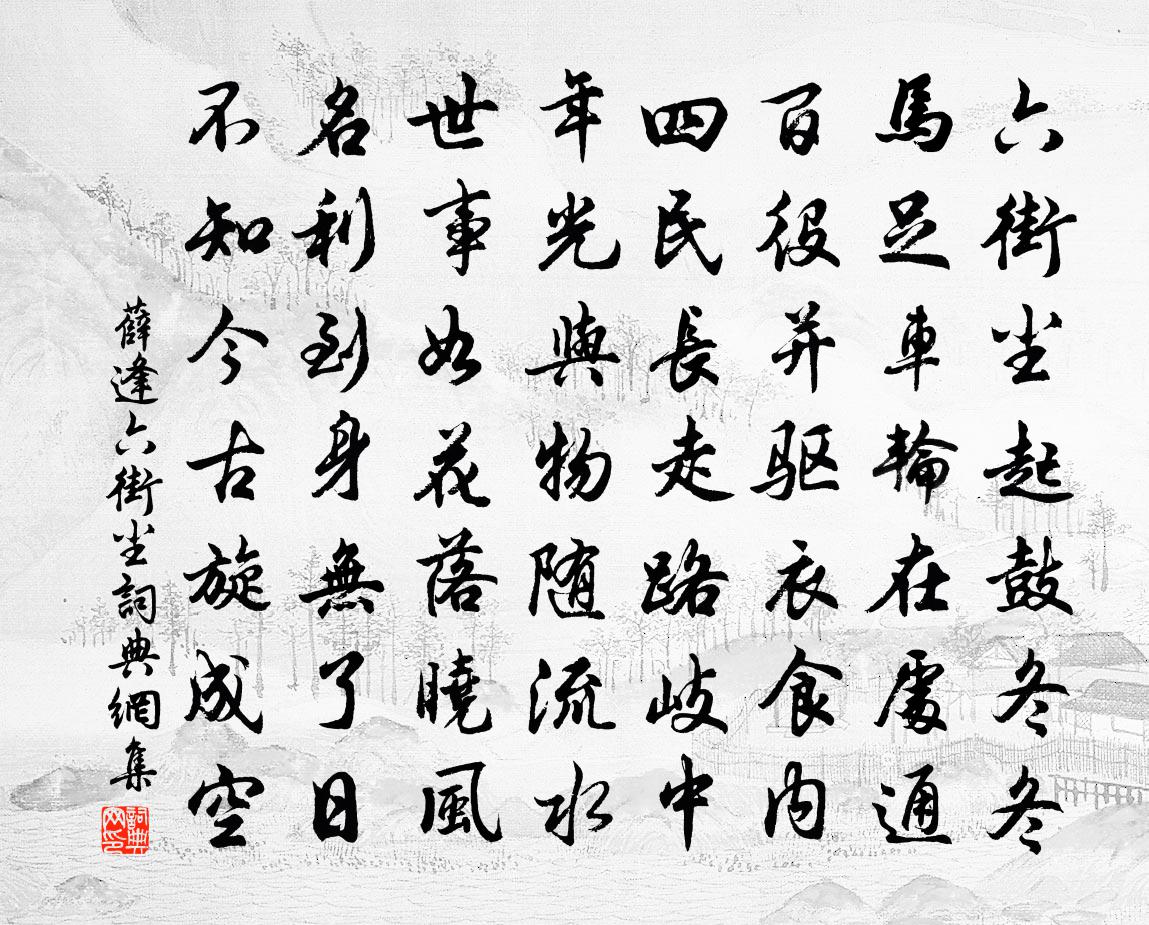 六街尘起鼓冬冬
馬足車輪在處通
百役并驱衣食内
四民長走路岐中
年光與物随流水
世事如花落曉風
名利到身無了日
不知今古旋成空
薛逢六街尘詞典網集
詞典网印